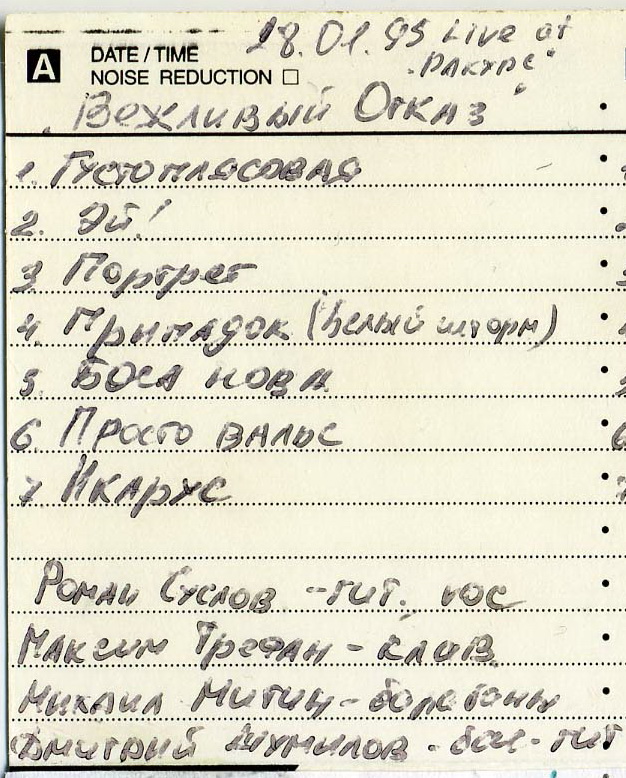 A DATE / TIME 28.01.95 Live at
NOISE REDUCTION "Ракурс"
"Вежливый Отказ"
1. Густоплясовая
2. Эй!
3 Портрет
4. Припадок (белый шторм)
5. Боса нова
6 Просто вальс
7 Икарус
Роман Суслов - гит. voc
Максим Трефан - клав.
Михаил Митин - барабаны
Дмитрий Шумилов - бас-гит